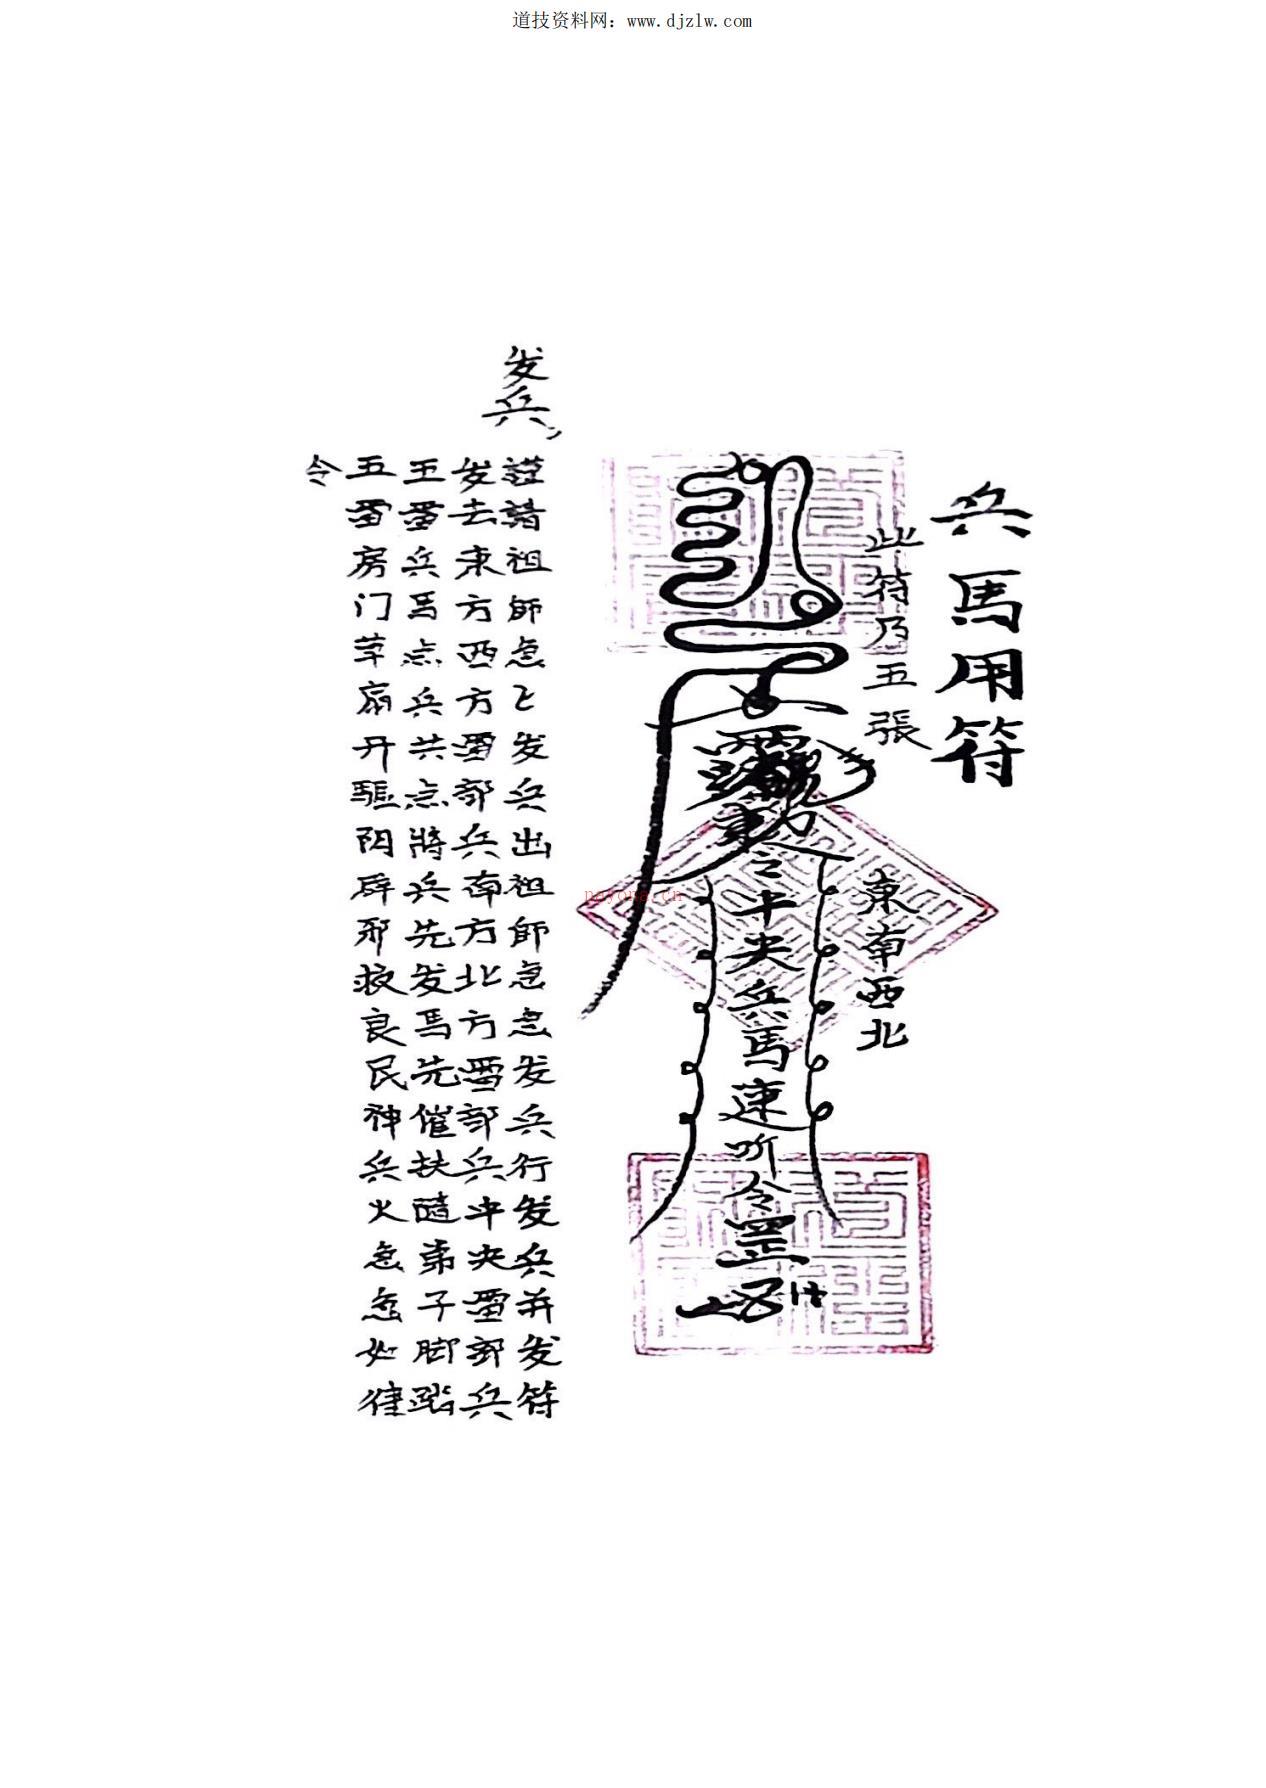 道技资料网：www.djzlw.com
兵馬用符
此符乃五張
東南西北
中央兵馬速听令罡
nayona.cn
发兵，
謹請祖師急七发兵出祖師急急发兵行发兵并发符
发去東方西方雷部兵南方北方雷部兵中央雷部兵
五雷兵馬点兵共点將兵先发馬先催扶隨弟子脚踏
五雷房门竿扇开驅阴辟邪救良民神兵火急急如律
令